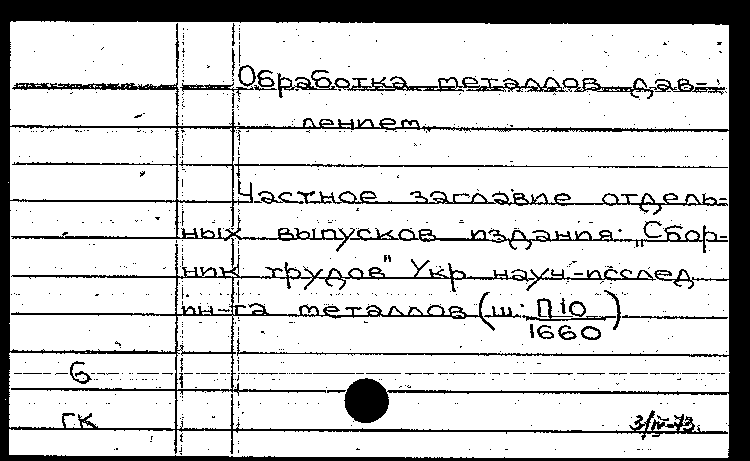 Обработка металлов дав=
лением.
Частное заглавие отдель=
ных выпусков издания: „Сбор-
ник трудов" Укр. науч.-исслед
ин-та металлов (ш. П10/1660)
б
ГК
3/IV-73.